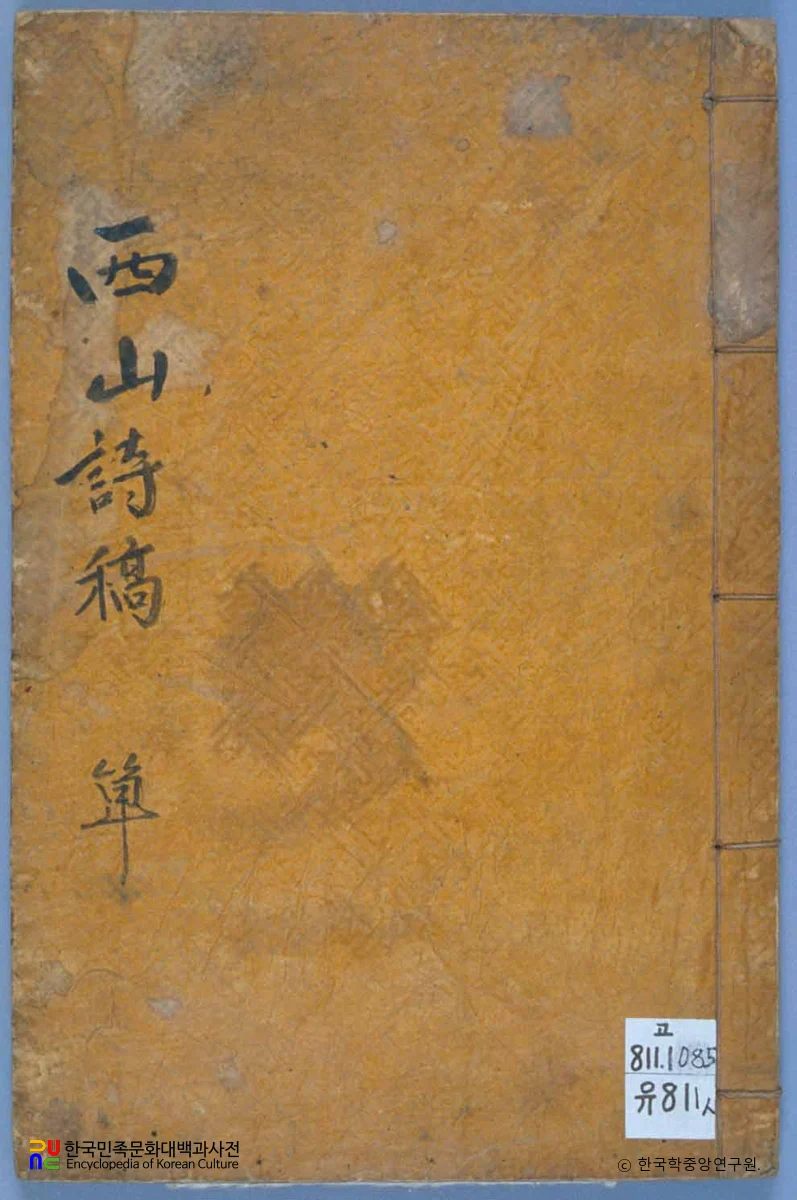 西山詩稿 單
고
811.1085
유811ㅅ
한국민족문화대백과사전
Encyclopedia of Korean Culture
ⓒ 한국학중앙연구원.